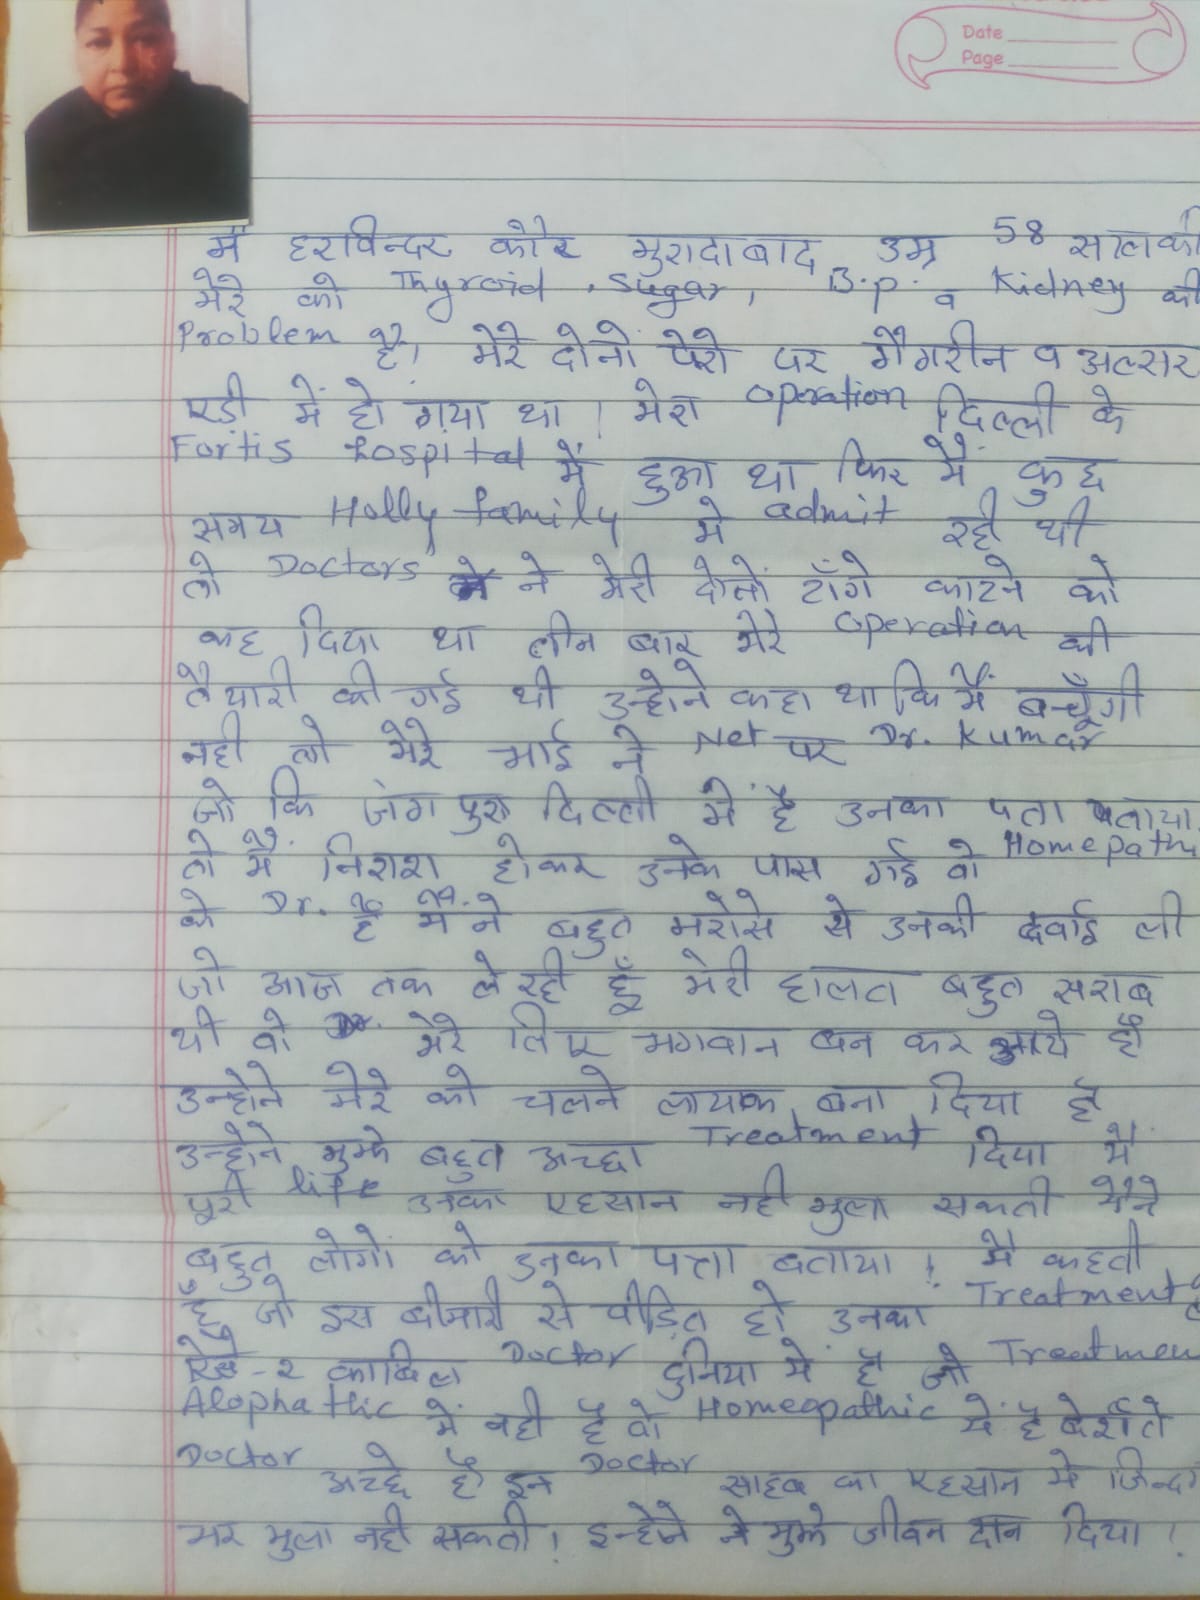 Date
Page
मैं हरविन्दर कौर मुरादाबाद उम्र 58 साल की
मेरे को Thyroid, Sugar, B.p. व Kidney की
Problem है। मेरे दोनो पैरो पर गैंगरीन व अल्सर
एड़ी में हो गया था। मेरा operation दिल्ली के
Fortis hospital में हुआ था फिर मैं कुछ
समय Holly family मे admit रही थी
तो Doctors ने मेरी दोनों टाँगे काटने को
कह दिया था तीन बार मेरे operation की
तैयारी की गई थी उन्होने कहा था कि मैं बचूँगी
नही तो मेरे भाई ने Net पर Dr. Kumar
जो कि जंगपुरा दिल्ली में है उनका पता बताया
तो मैं निराश होकर उनके पास गई वो Homepathi
के Dr. है मैंने बहुत भरोसे से उनकी दवाई ली
जो आज तक ले रही हूँ मेरी हालत बहुत खराब
थी वो Dr. मेरे लिए भगवान बन कर आये है
उन्होने मेरे को चलने लायक बना दिया है
उन्होने मुझे बहुत अच्छा Treatment दिया मैं
पूरी life उनका एहसान नही भुला सकती मैंने
बहुत लोगों को उनका पत्ता बताया। मैं कहती
हूँ जो इस बीमारी से पीड़ित हो उनका Treatment
ऐसे-२ काबिल Doctor दुनिया में है जो Treatmen
Alophathic में नही है वो Homeopathic में है बेशर्ते
Doctor अच्छे है इन Doctor साहब का एहसान मे जिन्दगी
भर भुला नही सकती। इन्होने ने मुझे जीवन दान दिया।